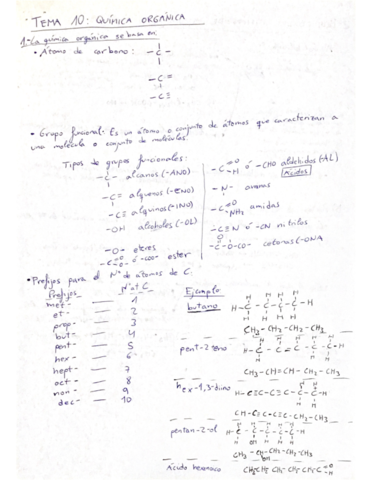 TEMA 10: QUÍMICA ORGÁNICA
1-La química orgánica se basa en:
• Átomo de carbono: -C-
-C=
-C≡
• Grupo funcional: Es un átomo o conjunto de átomos que caracterizan a
una molécula o conjunto de moléculas.
Tipos de grupos funcionales:
-C- alcanos (-ANO)
-C= alquenos (-ENO)
-C≡ alquinos (-INO)
-OH alcoholes (-OL)
-O- eteres
ó -COO- ester
ó -CHO aldehídos (-AL)
Ácidos
-N- aminas
amidas
-C≡N ó -CN nitrilos
-CO- cetonas (-ONA
• Prefijos para el Nº de átomos de C:
Prefijos Nº at C
met- 1
et- 2
prop- 3
but- 4
pent- 5
hex- 6
hept- 7
oct- 8
non- 9
dec- 10
Ejemplo
butano
CH3-CH2-CH2-CH3
pent-2-eno
CH3-CH=CH-CH2-CH3
hex-1,3-diino
CH≡C-C≡C-CH2-CH3
pentan-2-ol
CH3-CH-CH2-CH2-CH3
OH
Ácido hexanoico